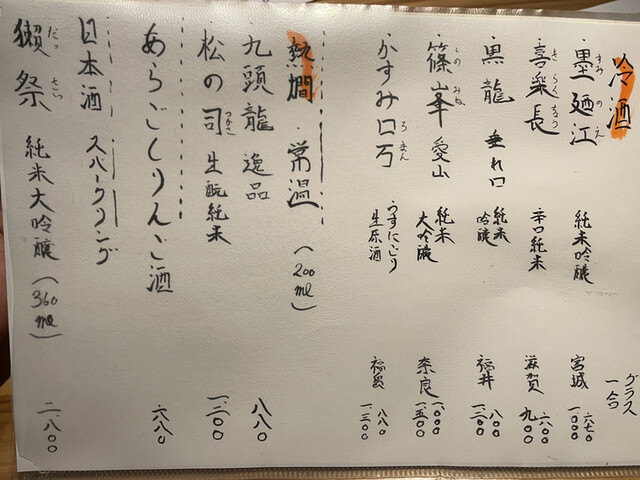 冷酒 グラス 一合
墨廼江 すみのえ 純米吟醸 宮城 六七〇 一.〇〇〇
喜楽長 きらくちょう 辛口純米 滋賀 六〇〇 九〇〇
黒龍 垂れ口 純米吟醸 福井 八〇〇 一.二〇〇
篠峯 しのみね 愛山 純米大吟醸 奈良 一.〇〇〇 一.五〇〇
かすみロ万 ろまん うすにごり生原酒 福島 八八〇 一.三〇〇
熱燗・常温 (200ml)
九頭龍 逸品 八八〇
松の司 つかさ 生酛純米 一.二〇〇
あらごしりんご酒 六八〇
日本酒 スパークリング
獺祭 だっさい 純米大吟醸 (360ml) 二.八〇〇